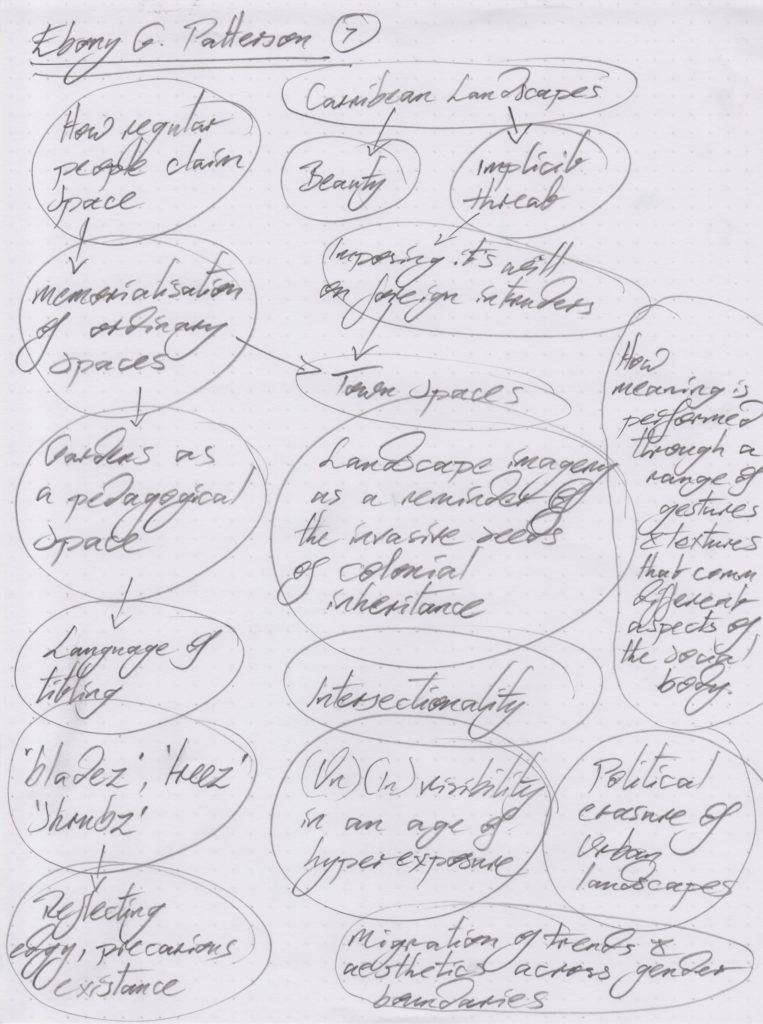 Ebony G. Patterson 7
Carribean Landscapes
How regular
people claim
space
Beauty
Implicit
threat
Imposing it's will
on foreign intruders
memorialisation
of ordinary
spaces
Town Spaces
How
meaning is
performed
through a
range of
gestures
& textures
that comm
different
aspects of
the social
body.
Gardens as
a pedagogical
space
Landscape imagery
as a reminder of
the invasive seeds
of colonial
inheritance
Language of
titling
Intersectionality
'bladez', 'treez'
'shrubz'
(Un)(In)visibility
in an age of
hyper exposure
Political
erasure of
Urban
landscapes
Reflecting
edgy, precarious
existance
Migration of trends &
aesthetics across gender
boundaries